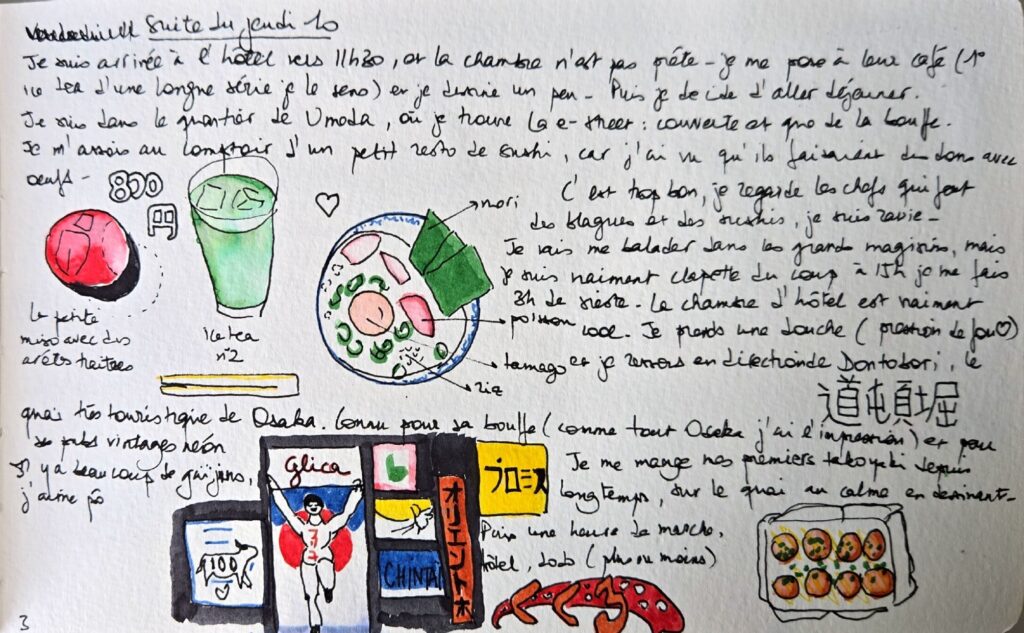 Suite du jeudi 10
Je suis arrivée à l'hôtel vers 11h30, et la chambre n'est pas prête - je me pose à leur café (1°
ice tea d'une longue série je le sens) et je dessine un peu - Puis je decide d'aller déjeuner.
Je suis dans le quartier de Umeda, où je trouve la e-street : couverte et que de la bouffe.
Je m'assois au comptoir d'un petit resto de sushi, car j'ai vu qu'ils faisaient des dons avec
oeufs -
800
円
C'est trop bon, je regarde les chefs qui font
des blagues et des sushis, je suis ravie -
Je vais me balader dans les grands magasins, mais
je suis vraiment clapette du coup à 15h je me fais
3h de sieste - La chambre d'hôtel est vraiment
cool. Je prends une douche (pression de fou ♡)
et je ressors en direction de Dontobori, le
nori
poisson
tamago
riz
la petite
miso avec des
arêtes traitres
ice tea
n°2
道頓堀
quai très touristique de Osaka. Connu pour sa bouffe (comme tout Osaka j'ai l'impression) et pour
ses pubs vintages néon
Il y a beaucoup de gaijins,
j'aime pô
Je me mange mes premiers takoyaki depuis
longtemps, sur le quai au calme en dessinant -
Puis une heure de marche,
hôtel, dodo (plus ou moins)
Glica
プロミス
オリエント
CHINTAI
100
3